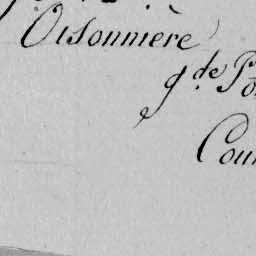 Oisonnière
g.de P
Cou